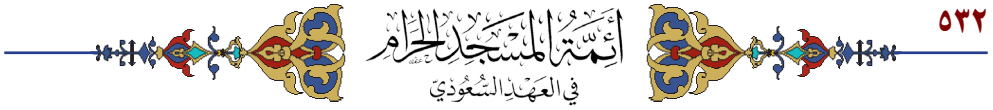 ٥٣٢
أَئِمَّةُ المَسْجِدِ الحَرَامِ
فِي العَهْدِ السُّعُودِيّ